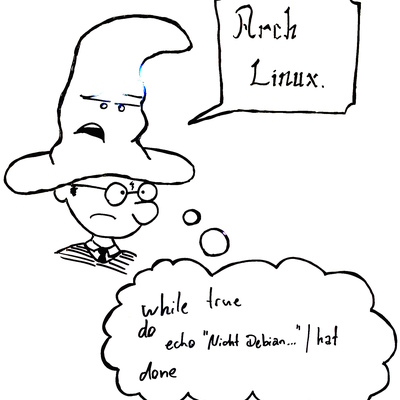 Arch
Linux.
while true
do
echo "Nicht Debian..." | hat
done